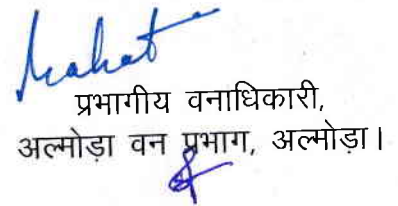 प्रभागीय वनाधिकारी,
अल्मोड़ा वन प्रभाग, अल्मोड़ा।